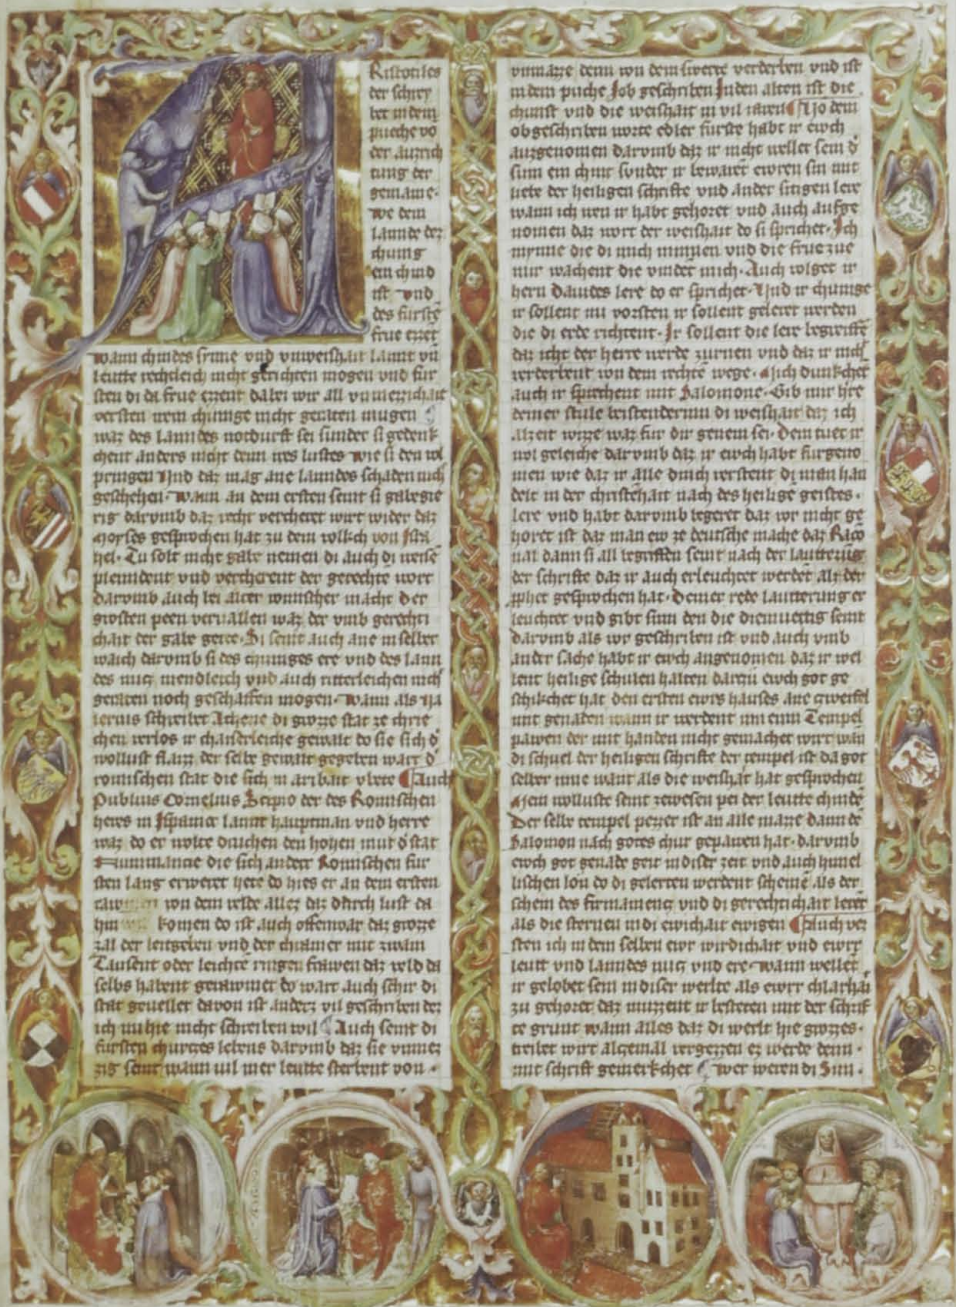 Ristotiles
der schrey
bet in dem
pueche vo
der auzrich
tung der
gemaine
we dem
lannde des
chunig
ein chind
ist vnd
des fursten
frue ezzet
wann chindes synne vnd vnweishait lannt vn
leutte rechtleich nicht gerichten mogen vnd fur
sten di da frue ezzent dabei wir all vnmezzichait
versten wem chunige nicht geraten mugen
waz des lanndes notdurft sei sunder si gedenk
chent anders nicht denn ires lustes wie si den vol
pringen Vnd daz mag ane lanndes schaden nich
geschehen Wann an dem ersten seint si gabegie
rig darvmb daz recht vercheret wirt wider daz
Moyses gesprochen hat zu dem volkch von Isra
hel Tu solt nicht gabe nemen di auch di weise
plenndent vnd vercherent der gerechte wort
darvmb auch bei alter romischer macht der
grosten peen vervallen waz der vmb gerechti
chait der gabe gerte Si seint auch ane mselber
waich darvmb si des chuniges ere vnd des lann
des nucz mendleich vnd auch ritterleichen nich
geraten noch geschaffen mogen Wann als Va
lerius schreibet Athene di grozze stat ze chrie
chen verlos ir chaiserleiche gewalt do sie sich d
wollust flaizz der selbe gewalt gegeben wart d
romischen stat die sich in arbait vbete Auch
Publius Cornelius Scipio der des Romischen
heres in Ispanier lannt hauptman vnd herre
waz do er wolte druchen den hohen mut d stat
Numancie die sich ander Romischen fur
sten lang erweret hete do hies er an dem ersten
von dem velde allez daz durch lust da
hin komen do ist auch offenwar daz grozze
zal der leitgeben vnd der chramer mit zwain
Tausent oder leichten ringen frawen daz veld da
selbs habent gerawmet do wart auch schir di
stat gevellet davon ist anders vil geschriben dez
ich nu hie nicht schreiben wil Auch seint di
fursten churczes lebens darvmb daz sie vnmez
zig seint wann vil mer leutte sterbent von
vnmazze denn von dem swerte verderben vnd ist
in dem puche Job geschriben In den alten ist die
chunst vnd die weishait in vil iaren Vo dem
obgeschriben worte edler furste habt ir ewch
auzgenomen darvmb daz ir nicht wellet sein d
sinn ein chint sunder ir bewaret ewren sin mit
liebe der heiligen schrifte vnd ander sitigen lere
wann ich ven ir habt gehoret vnd auch aufge
nomen daz wort der weishait do si sprichet Ich
mynne die di mich minnen vnd die frue zue
mir wachent die vindet mich Auch volget ir
hern Dauides lere do er sprichet Vnd ir chunige
ir sollent nu vorsten ir sollent geleret werden
die di erde richtent Ir sollent die lere begreiffen
daz icht der herre werde zurnen vnd daz ir nicht
verderbent von dem rechte wege Mich dunkchet
auch ir sprechent mit Salomone Gib mir herre
deiner stule beistenderinn di weishait daz ich
alzeit wizze waz fur dir genem sei Dem tuet ir
wol geleiche darvmb daz ir ewch habt furgeno
men wie daz ir alle dinch verstent di man han
delt in der christenhait nach des heilige geistes
lere vnd habt darvmb begeret daz wir nicht ge
horet ist daz man ew ze deutsche mache daz Racio
nal dann si all begriffen seint nach der lautterung
der schrifte daz ir auch erleuchtet werdet alz der
prophet gesprochen hat Deiner rede lautterung er
leuchtet vnd gibt sinn den die diemuettig seint
darvmb als wir geschriben ist vnd auch vmb
ander sache habt ir ewch angenomen daz ir wel
lent heilige schulen halten darzu ewch got ge
schikchet hat den ersten ewrs hauses ane zweifel
mit genaden wann ir werdent im einn Tempel
pawen der mit handen nicht gemachet wirt wan
di schuel der heiligen schrifte der tempel ist da got
selber inne want als die weishait hat gesprochen
Mein wolluste seint zewesen pei der leutte chinden
Der selbe tempel pezzer ist an alle maze dann de
Salomon nach gotes chur gepawen hat darvmb
ewch got genade geit in diser zeit vnd auch himel
lischen lon do di gelerten werdent scheinen als der
schein des firmamencz vnd di gerechtichait leret
als die sternen in di ewichait ewigen Auch ver
sten ich in dem selben ewr wirdichait vnd ewrr
leutt vnd lanndes nucz vnd ere Wann wellet
ir gelobet sein in diser werlte als ewrr chlarhait
zu gehoret daz muzzent ir besteren mit der schrif
te grunt wann alles daz di werlt hie grozzes
treibet wirt alczemal vergezzen ez werde denn
mit schrift gemerkchet Wer weren di Sinn